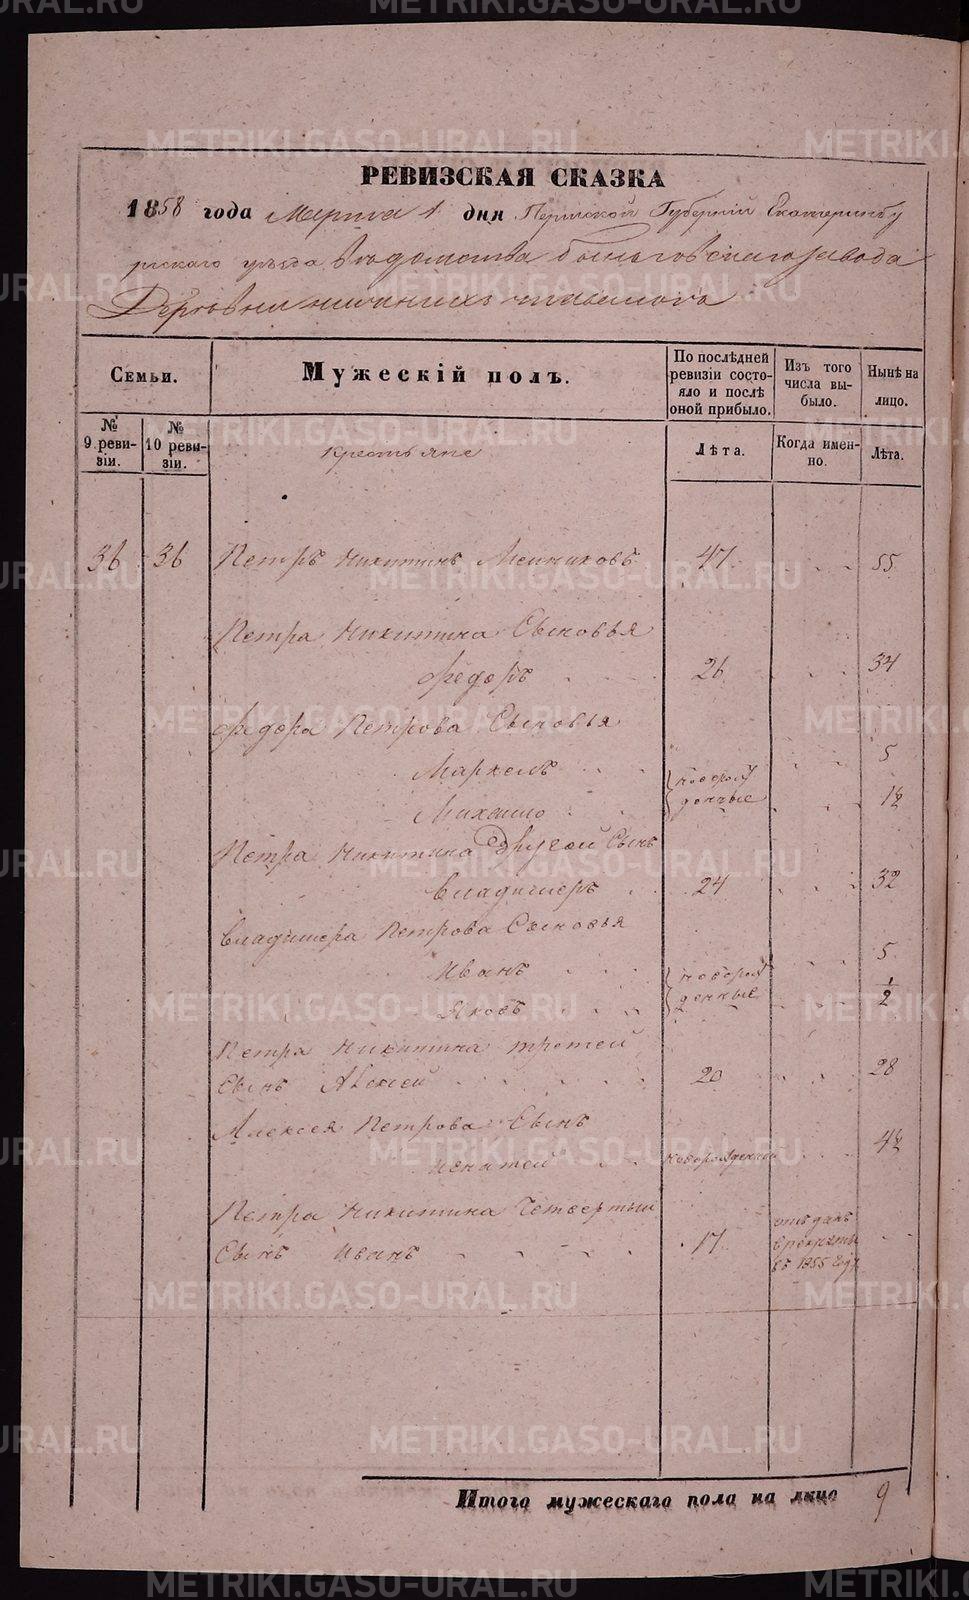 METRIKI.GASO-URAL.RU
РЕВИЗСКАЯ СКАЗКА
1858 года Марта 1 дня Пермской Губерніи Екатеринбу
ргскаго уѣзда Вѣдомства быньговскаго завода
Деревни нижнихъ
Семьи.
Мужескій полъ.
По послѣдней ревизіи состояло и послѣ оной прибыло.
Изъ того числа выбыло.
Нынѣ на лицо.
№ 9 ревизіи.
№ 10 ревизіи.
Крестьяне
Лѣта.
Когда именно.
Лѣта.
36 36 Петръ Никитинъ 47 55
Петра Никитина Сыновья
Федоръ 26 34
Федора Петрова Сыновья
Маркелъ 5
Михаило 1½
новорож
денные
Петра Никитина Другой Сынъ
Владимеръ 24 32
Владимера Петрова Сыновья
Иванъ 5
Яковъ ½
новорож
денные
Петра Никитина третей
Сынъ Алексей 20 28
Алексея Петрова Сынъ
Игнатей новорожденной 4½
Петра Никитина Четвертый
Сынъ Иванъ 17
отъданъ
в рекруты
въ 1855 году
Итого мужескаго пола на лицо 9